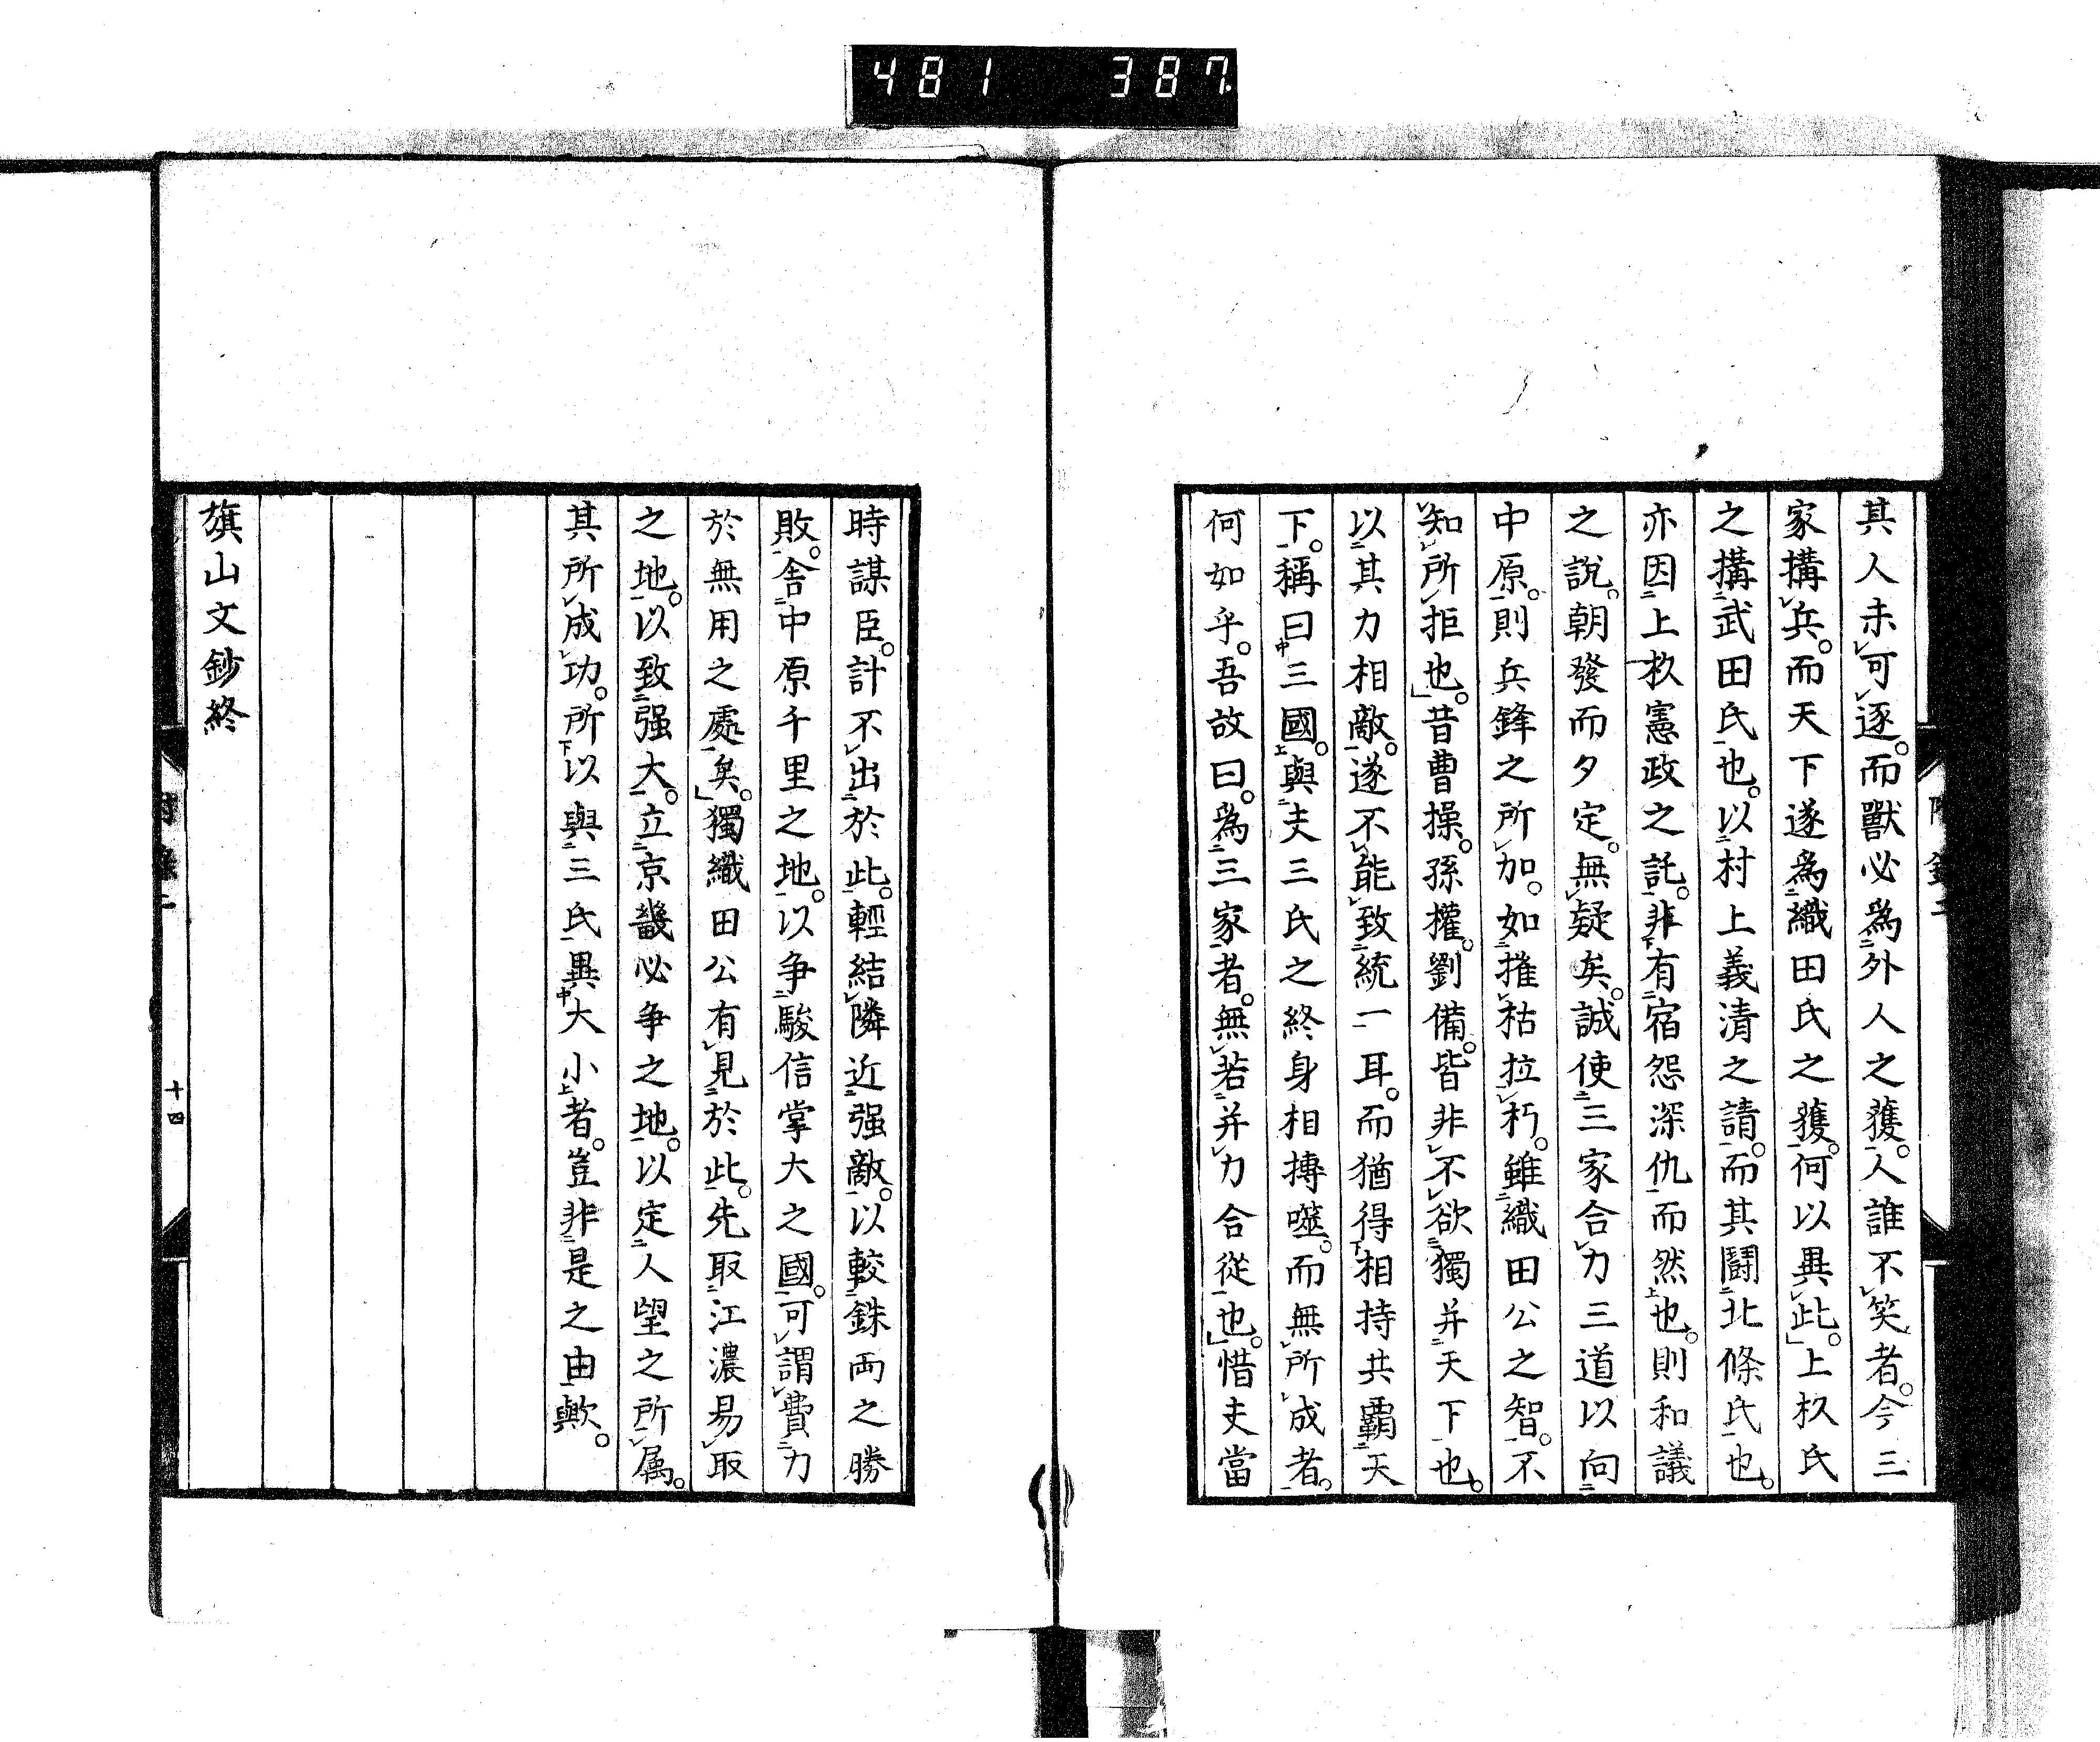 481 387
其人未可逐。而獸必爲外人之獲。人誰不笑者。今三
家搆兵。而天下遂爲織田氏之獲。何以異此。」上杉氏
之搆武田氏也。以村上義清之請。而其鬪北條氏也。
亦因上杉憲政之託。非有宿怨深仇而然也。則和議
之說。朝發而夕定。無疑矣。誠使三家合力三道以向
中原。則兵鋒之所加。如摧枯拉朽。雖織田公之智。不
知所拒也。」昔曹操。孫權。劉備。皆非不欲獨并天下也。
以其力相敵。遂不能致統一耳。而猶得相持共霸天
下。稱曰三國。與夫三氏之終身相搏噬。而無所成者。
何如乎。吾故曰。爲三家者。無若并力合從也。」惜夫當
時謀臣。計不出於此。輕結隣近强敵。以較銖両之勝
敗。舍中原千里之地。以争駿信掌大之國。可謂費力
於無用之處矣。」獨織田公有見於此。先取江濃易取
之地。以致强大。立京畿必争之地。以定人望之所属。
其所成功。所以與三氏異大小者。豈非是之由歟。
旗山文鈔終
十四